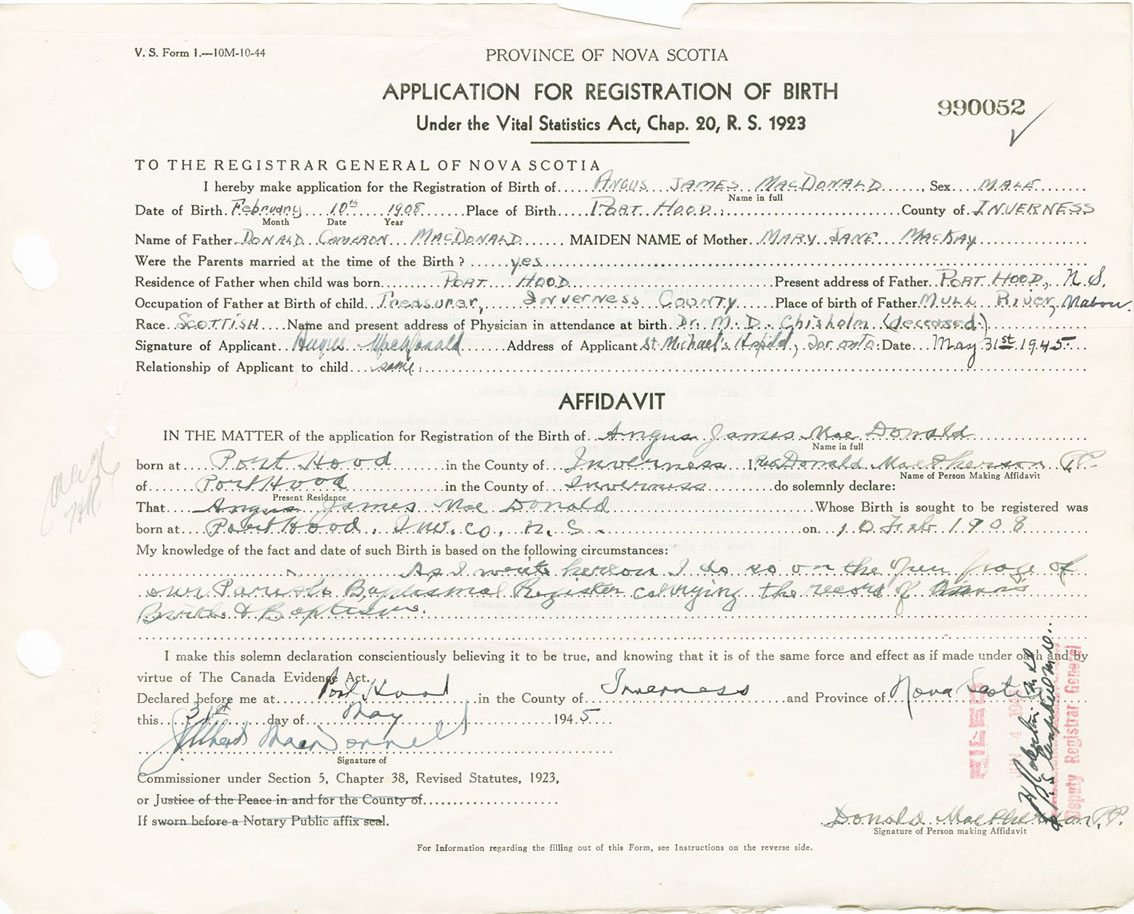 V. S. Form 1.—10M-10-44
PROVINCE OF NOVA SCOTIA
APPLICATION FOR REGISTRATION OF BIRTH
990052
Under the Vital Statistics Act, Chap. 20, R. S. 1923
TO THE REGISTRAR GENERAL OF NOVA SCOTIA
I hereby make application for the Registration of Birth of Angus James MacDonald, Sex Male
Name in full
Date of Birth February 10th 1908 Place of Birth Port Hood, County of Inverness
Month Date Year
Name of Father Donald Cameron MacDonald MAIDEN NAME of Mother Mary Jane MacKay
Were the Parents married at the time of the Birth? yes
Residence of Father when child was born Port Hood Present address of Father Port Hood, N.S.
Occupation of Father at Birth of child Treasurer, Inverness County Place of birth of Father Mull River, Mabou.
Race Scottish Name and present address of Physician in attendance at birth Dr. M. D. Chisholm (deceased)
Signature of Applicant Angus MacDonald Address of Applicant St Michael's Hospital, Toronto. Date May 31st 1945.
Relationship of Applicant to child same.
AFFIDAVIT
IN THE MATTER of the application for Registration of the Birth of Angus James MacDonald
Name in full
born at Port Hood in the County of Inverness I, Donald MacPherson P.P.
Name of Person Making Affidavit
of Port Hood in the County of Inverness do solemnly declare:
Present Residence
That Angus James MacDonald Whose Birth is sought to be registered was
born at Port Hood, Inv. Co., N.S. on 10 Feb 1908
My knowledge of the fact and date of such Birth is based on the following circumstances:
As I write hereon I do so on the open page of
our Parish Baptismal Register carrying the record of
Birth & Baptism.
I make this solemn declaration conscientiously believing it to be true, and knowing that it is of the same force and effect as if made under oath and by
virtue of The Canada Evidence Act.
Declared before me at Port Hood in the County of Inverness and Province of Nova Scotia
this 31st day of May 1945
MacDonnell
Signature of
Commissioner under Section 5, Chapter 38, Revised Statutes, 1923,
or Justice of the Peace in and for the County of
If sworn before a Notary Public affix seal.
Donald MacPherson P.P.
Signature of Person making Affidavit
FILED
Deputy Registrar General
For Information regarding the filling out of this Form, see Instructions on the reverse side.